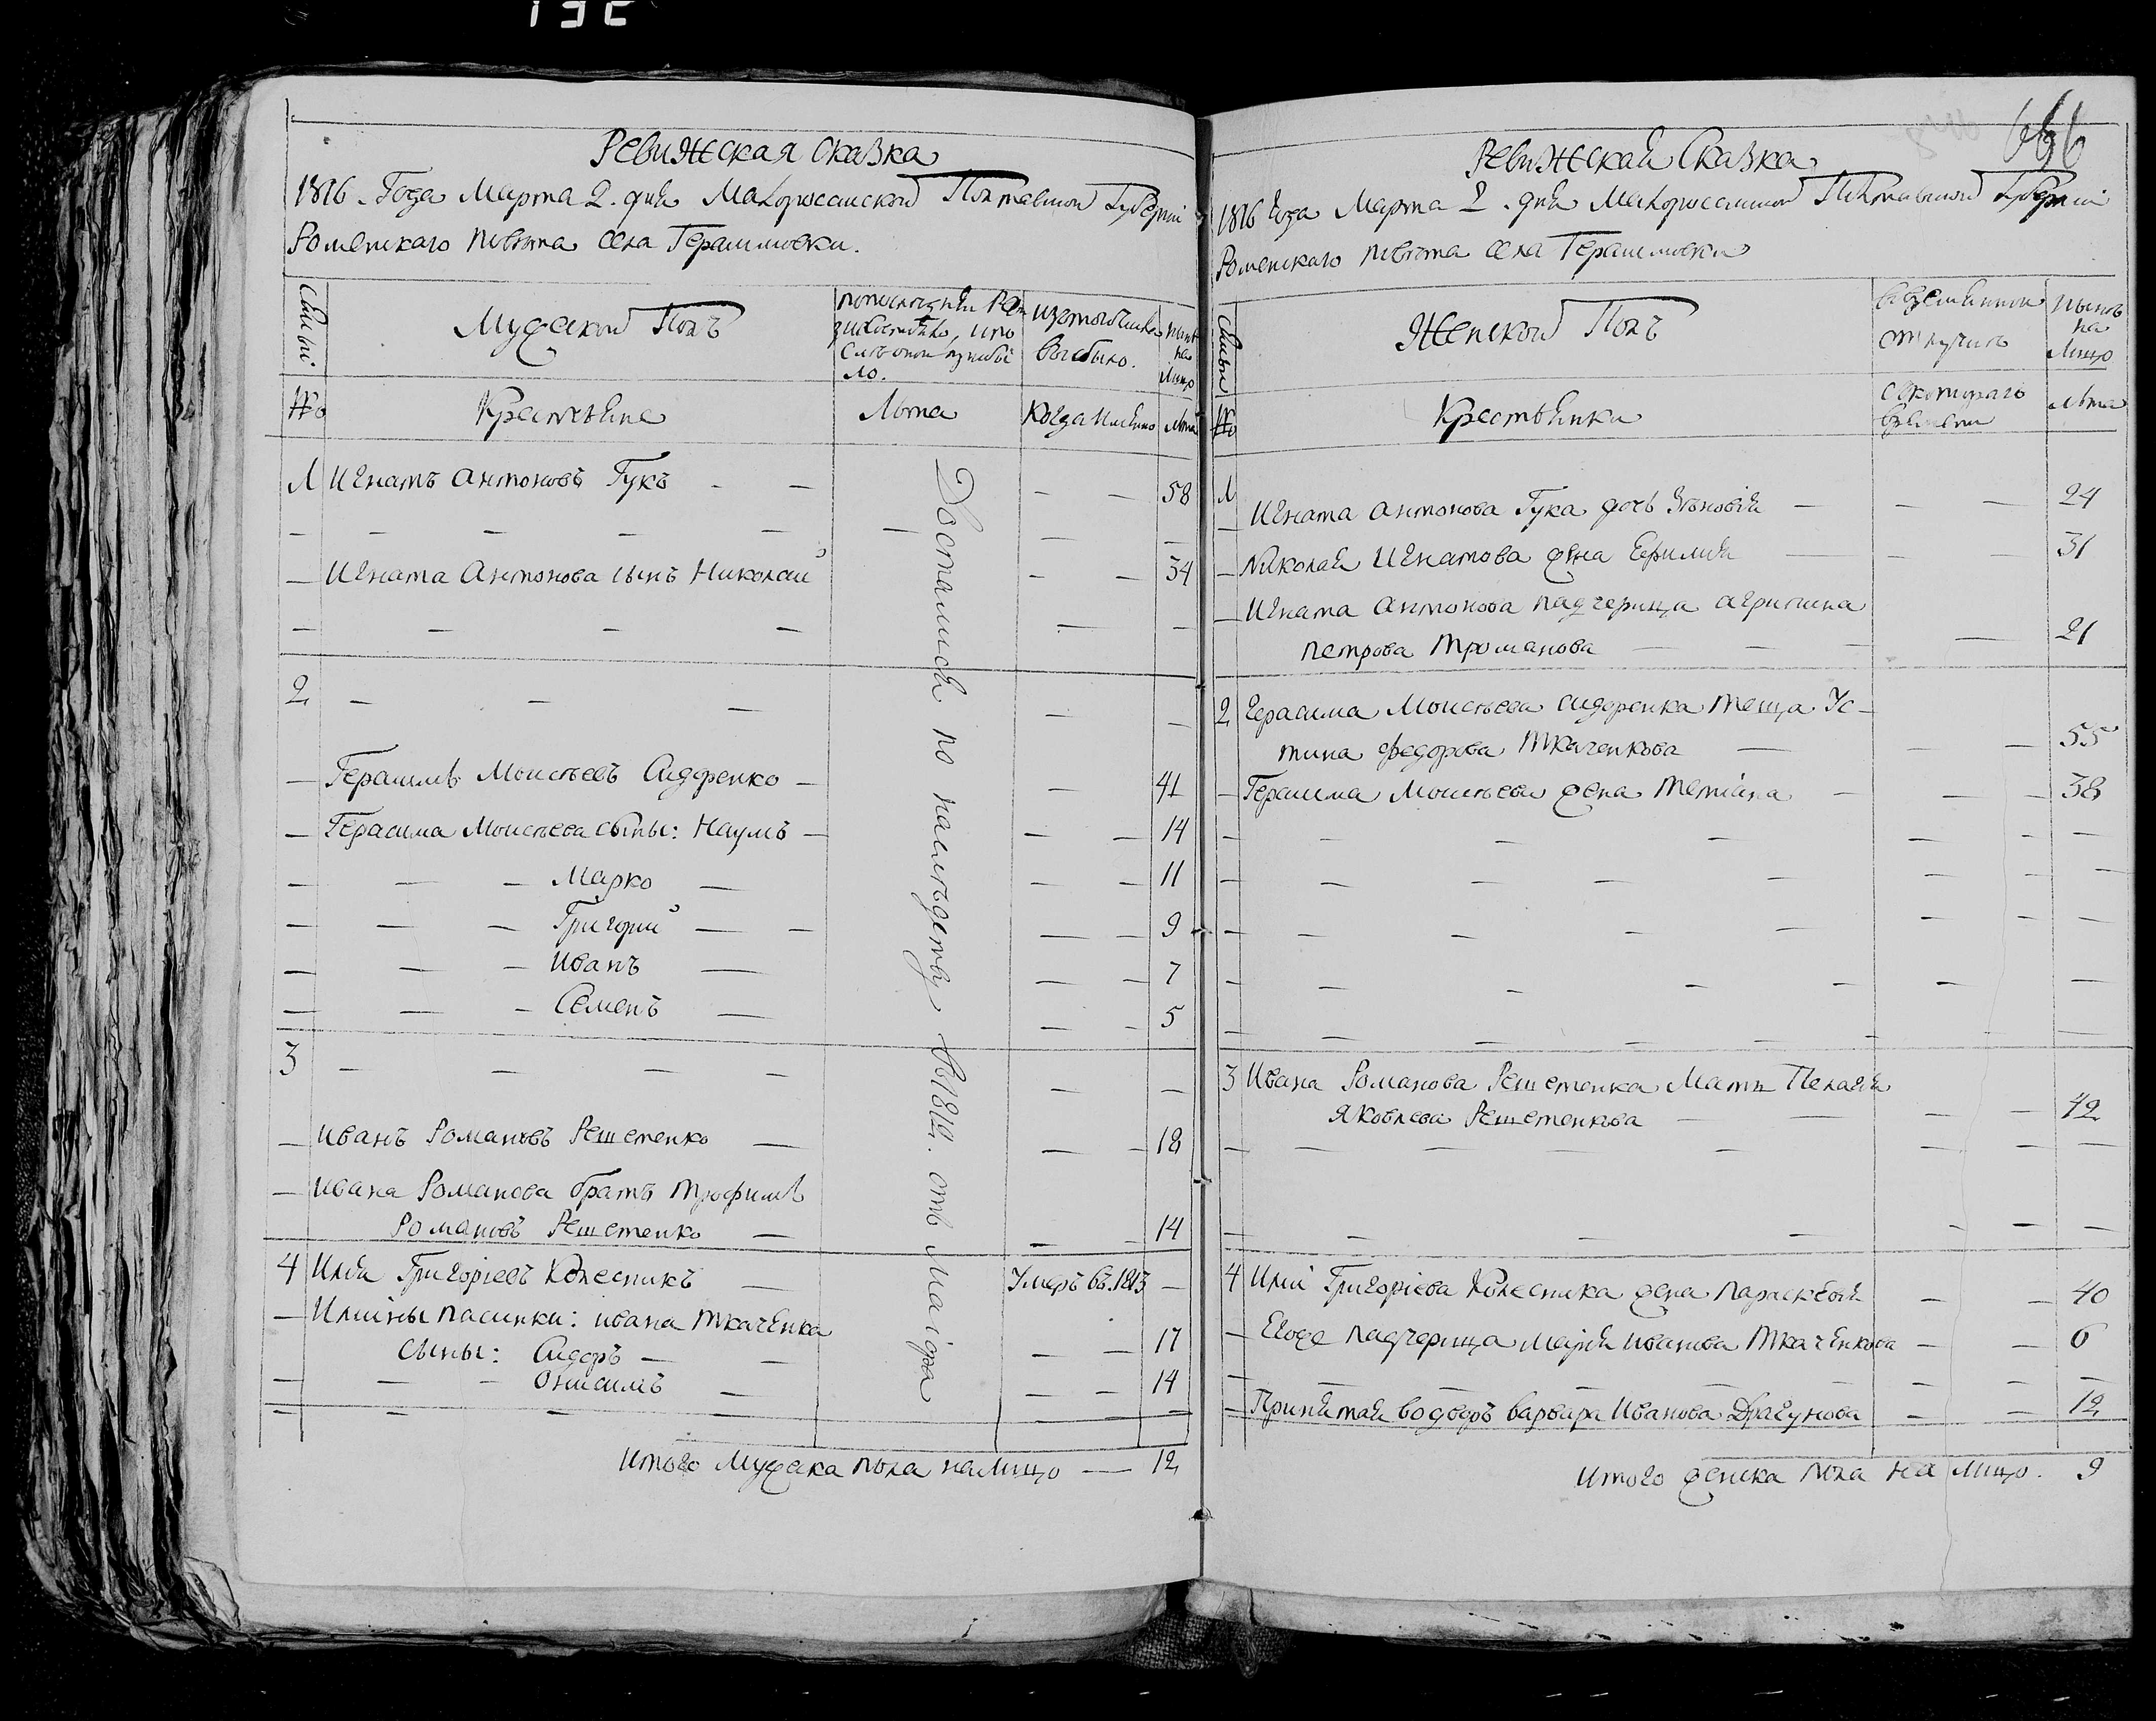 Ревижская сказка
1816 Года Марта 2. дня Малороссиской Полтавской Губерніи
Роменскаго повѣта села Герасимовки.
Семьи
Мужской Полъ
изтого числа
выбыло.
Ныне
на
лицо
№
Крестьяне
Лѣта
Когда имянно
лѣта
1 Игнатъ Антоновъ Гукъ 58
Игната Антонова сынъ Николай 34
2
Герасимъ Моисеевъ Сидоренко 41
Герасима Моисеева сыны: Наумъ 14
Марко 11
Григорий 9
Иванъ 7
Семенъ 5
3
Иванъ Романовъ Решетенко 18
Ивана Романова братъ Трофимъ
Романовъ Решетенко 14
4 Илия Григоріевъ Колесникъ Умеръ въ 1813
Илиины пасинки: ивана Ткаченка
сыны: Сидоръ 17
Онисимъ 14
Итого Мужеска пола налицо 12
Досталися по наслѣдству въ 1812. отъ маіора
666
Ревижская Сказка
1816 года Марта 2. дня Малороссиской Полтавской Губерніи
Роменскаго повѣта села Герасимовки
Семьи
Женской Полъ
во временной
отлучкѣ
Ныне
на
лицо
№
Крестьянки
с котораго
времени
лѣта
1
Игната Антонова Гука дочь Зѣновія 24
Николая Игнатова жена Ефимия 31
Игната Антонова падчерица агрипина
петрова троманова 21
2 Герасима Моисеева сидоренка теща Ус-
тина федорова Ткаченкова 55
Герасима Моисеева жена Тетіана 38
3 Ивана Романова Решетенка Мать Пелагия
Яковлева Решетенкова 42
4 Илии Григоріева Колесника жена параскевия 40
Егоже падчерица марія иванова Ткаченкова 6
Принятая водворъ варвара Иванова Драгунова 12
Итого женска пола на лицо. 9